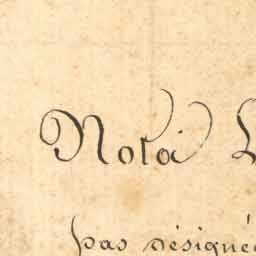 Nota L
pas désignée